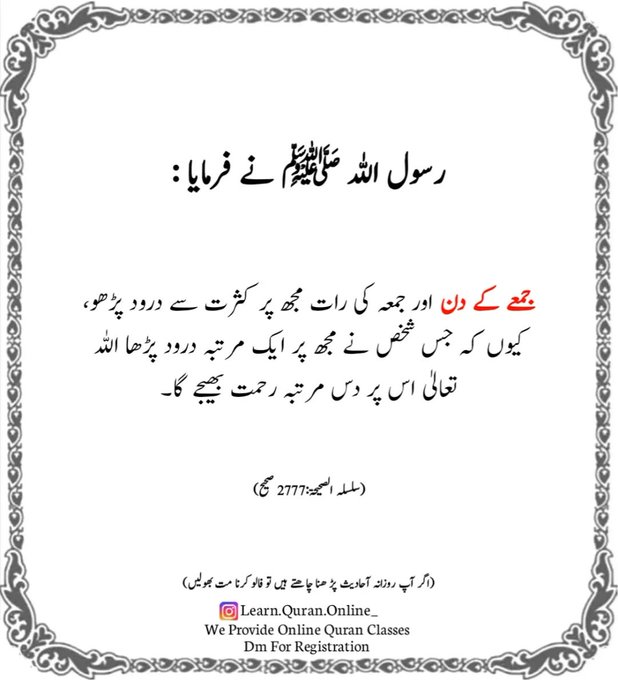 رسول اللہ ﷺ نے فرمایا:
جمعے کے دن اور جمعہ کی رات مجھ پر کثرت سے درود پڑھو،
کیوں کہ جس شخص نے مجھ پر ایک مرتبہ درود پڑھا اللہ
تعالیٰ اس پر دس مرتبہ رحمت بھیجے گا۔
(سلسلہ الصحیحۃ:2777 صحیح)
(اگر آپ روزانہ آحادیث پڑھنا چاھتے ہیں تو فالو کرنا مت بھولیں)
Learn.Quran.Online_
We Provide Online Quran Classes
Dm For Registration